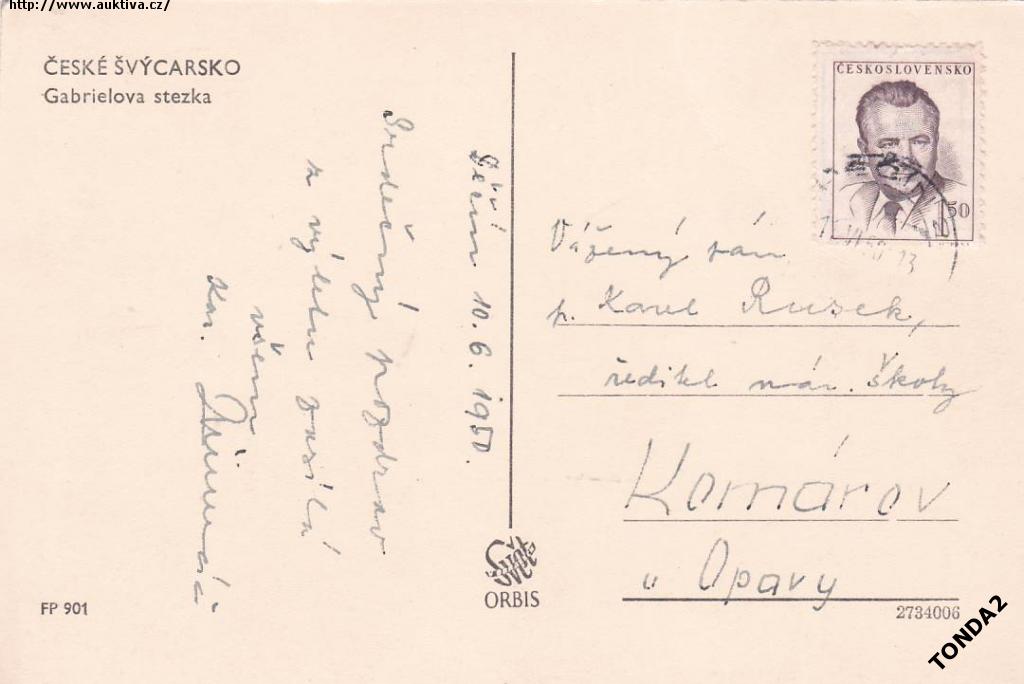 http://www.auktiva.cz/
ČESKÉ ŠVÝCARSKO
Gabrielova stezka
Děčín 10. 6. 1950.
Srdečný pozdrav
z výletu zasílá
všem
Kar.
ČESKOSLOVENSKO
50
Vážený pán
p. Karel Rusek,
ředitel nár. školy
Komárov
u Opavy
Svět
ORBIS
FP 901
2734006
TONDA2